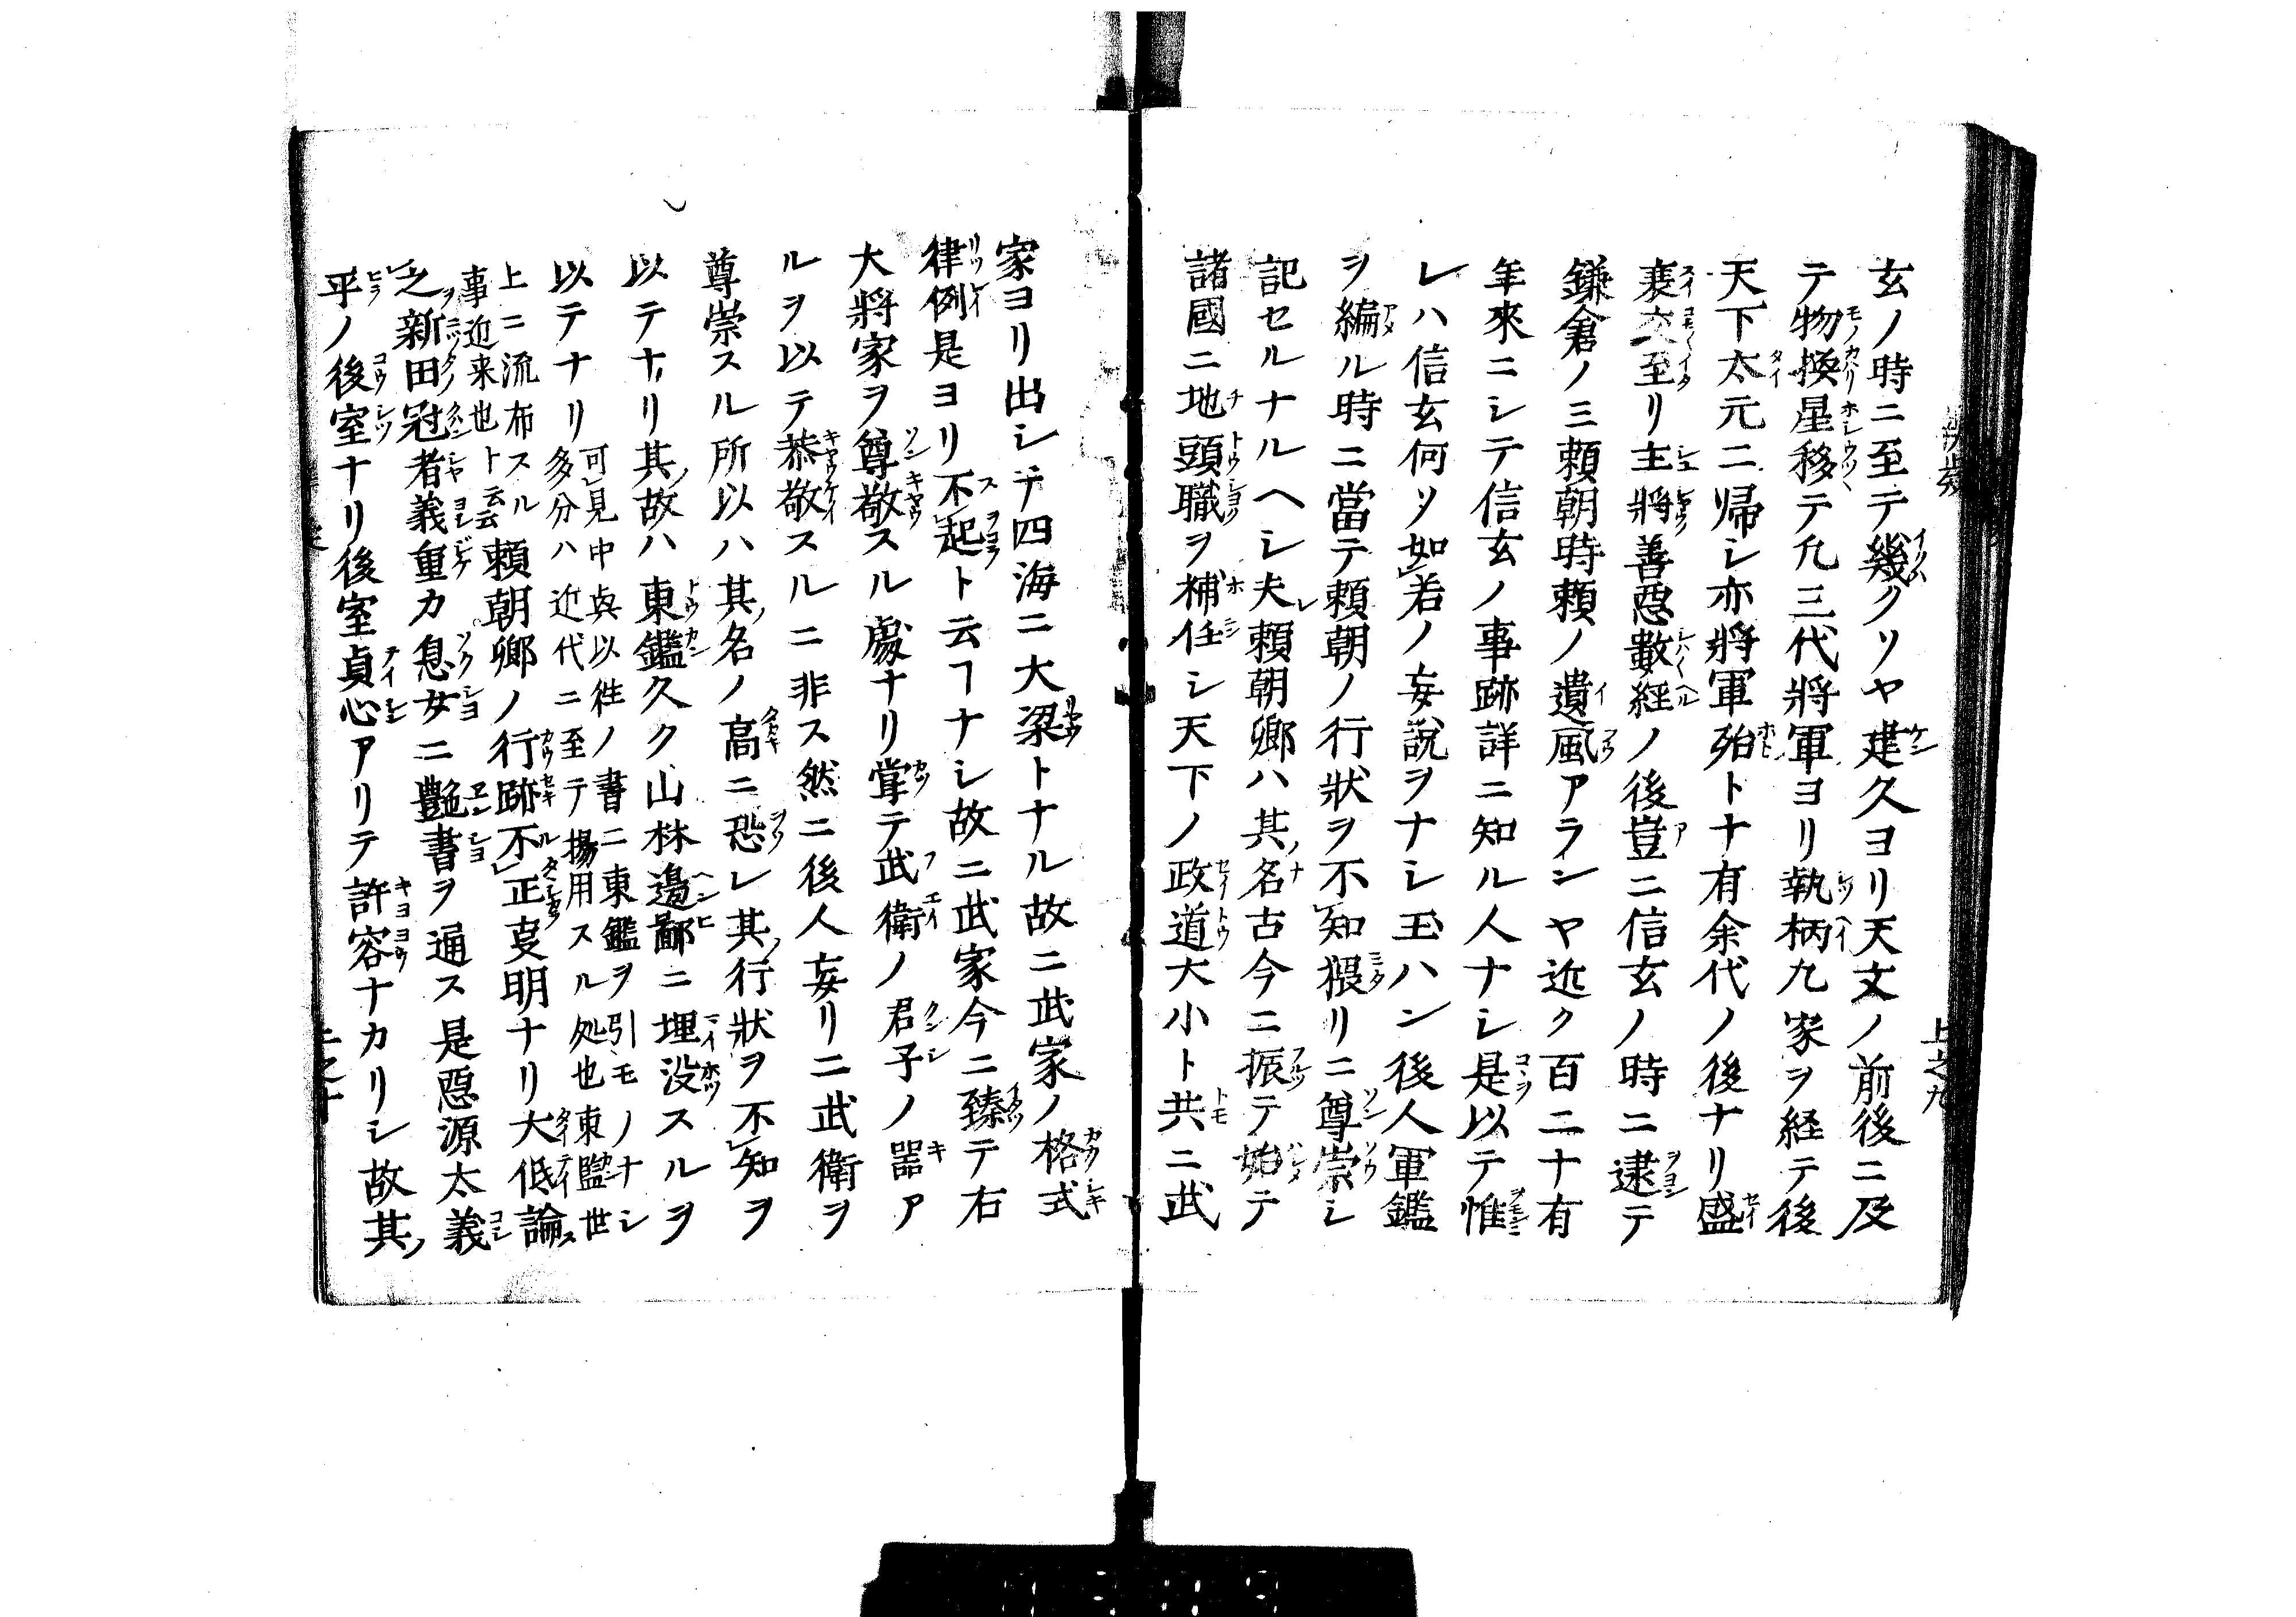 玄ノ時ニ至テ幾クソヤ建久ヨリ天文ノ前後ニ及
テ物換星移テ凢三代將軍ヨリ執柄九家ヲ経テ後
天下太元ニ帰シ亦將軍殆トナ有余代ノ後ナリ盛
衰交至リ主將善惡數経ノ後豈ニ信玄ノ時ニ逮テ
鎌倉ノ三頼朝時頼ノ遺風アランヤ近ク百二十有
年來ニシテ信玄ノ事跡詳ニ知ル人ナシ是以テ惟
レハ信玄何ソ如若ノ妄説ヲナシ玉ハン後人軍鑑
ヲ編ル時ニ當テ頼朝ノ行狀ヲ不知猥リニ尊崇シ
記セルナルヘシ夫頼朝卿ハ其名古今ニ振テ始テ
諸國ニ地頭職ヲ補任シ天下ノ政道大小ト共ニ武
家ヨリ出シテ四海ニ大梁トナル故ニ武家ノ格式
律例是ヨリ不起ト云ヿナシ故ニ武家今ニ臻テ右
大將家ヲ尊敬スル處ナリ掌テ武衛ノ君子ノ器ア
ルヲ以テ恭敬スルニ非ス然ニ後人妄リニ武衛ヲ
尊崇スル所以ハ其名ノ高ニ恐レ其行狀ヲ不知ヲ
以テナリ其故ハ東鑑久ク山林邊鄙ニ埋没スルヲ
以テナリ
可見中與以徃ノ書ニ東鑑ヲ引モノナシ
多分ハ近代ニ至テ揚用スル処也東鑑世
上ニ流布スル
事近来也ト云云
頼朝卿ノ行跡不正叓明ナリ大低論
之新田冠者義重カ息女ニ艶書ヲ通ス是惡源太義
平ノ後室ナリ後室貞心アリテ許容ナカリシ故其